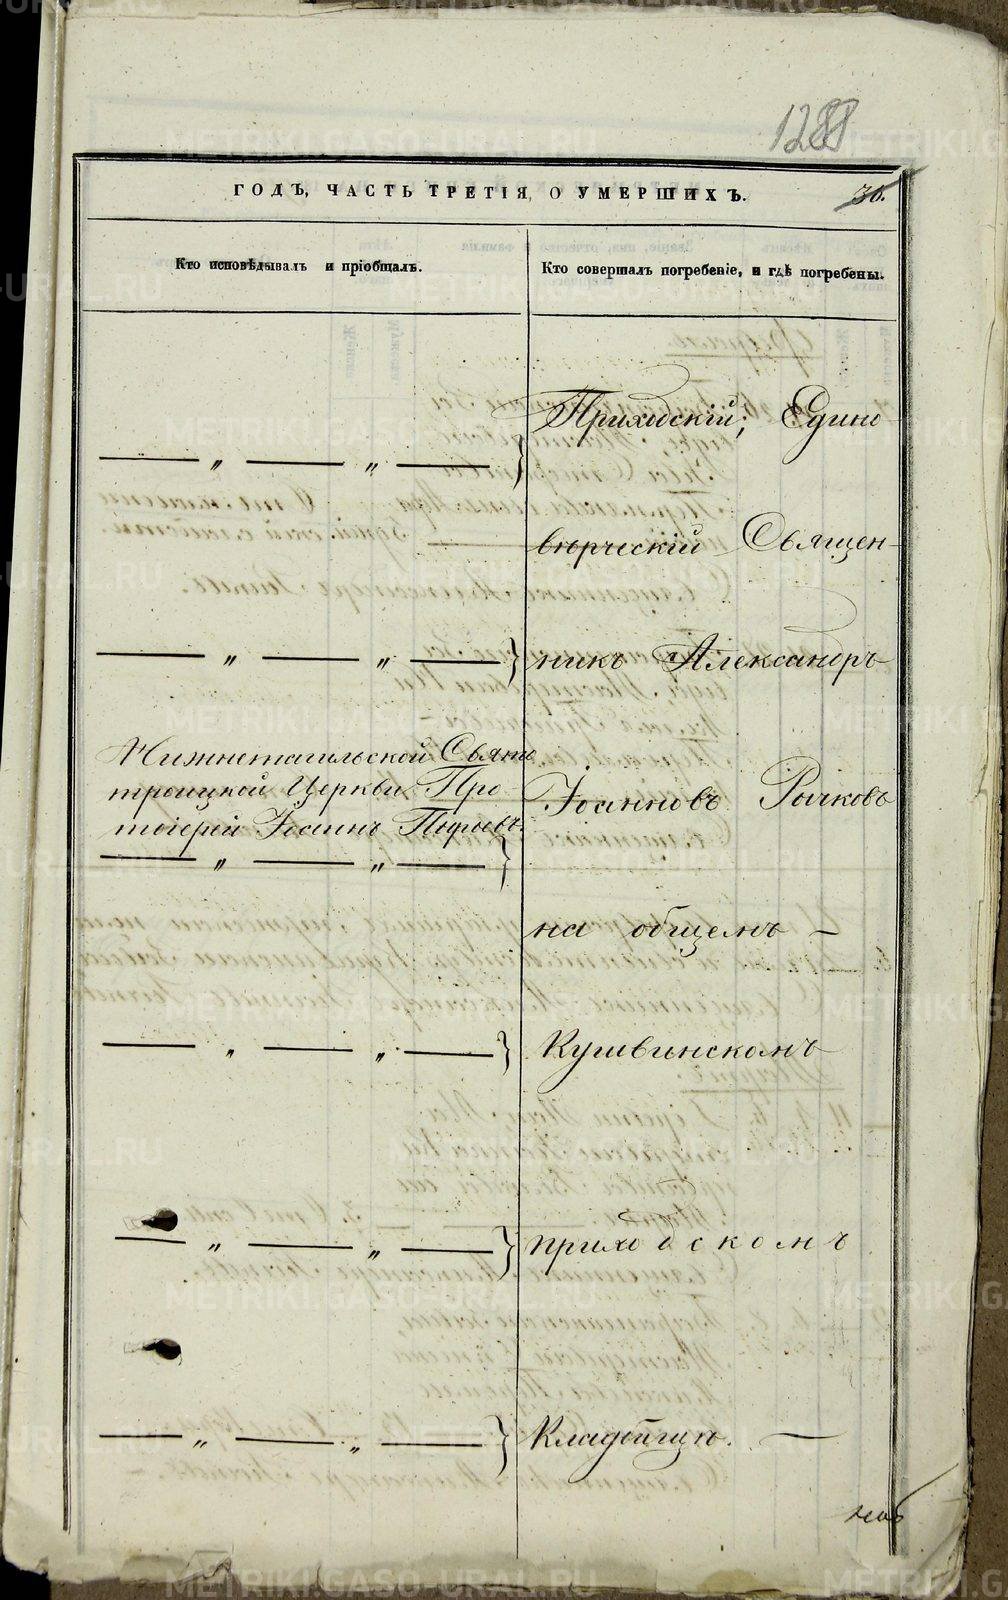 1288
ГОДЪ, ЧАСТЬ ТРЕТІЯ, О УМЕРШИХЪ.
30.
Кто исповѣдывалъ и пріобщалъ.
Кто совершалъ погребеніе, и гдѣ погребены.
Приходскій, Едино
— „ — „ —
вѣрческій Священ-
— „ — „ —
никъ Александръ
Нижнетагильской Свято
троицкой Церкви Про
тоіерей Іоаннъ Пырьевъ.
Іоанновъ Рычковъ
— „ — „ —
на общемъ —
— „ — „ —
Кушвинскомъ
— „ — „ —
приходскомъ
— „ — „ —
Кладбищѣ. —
METRIKI.GASO-URAL.RU